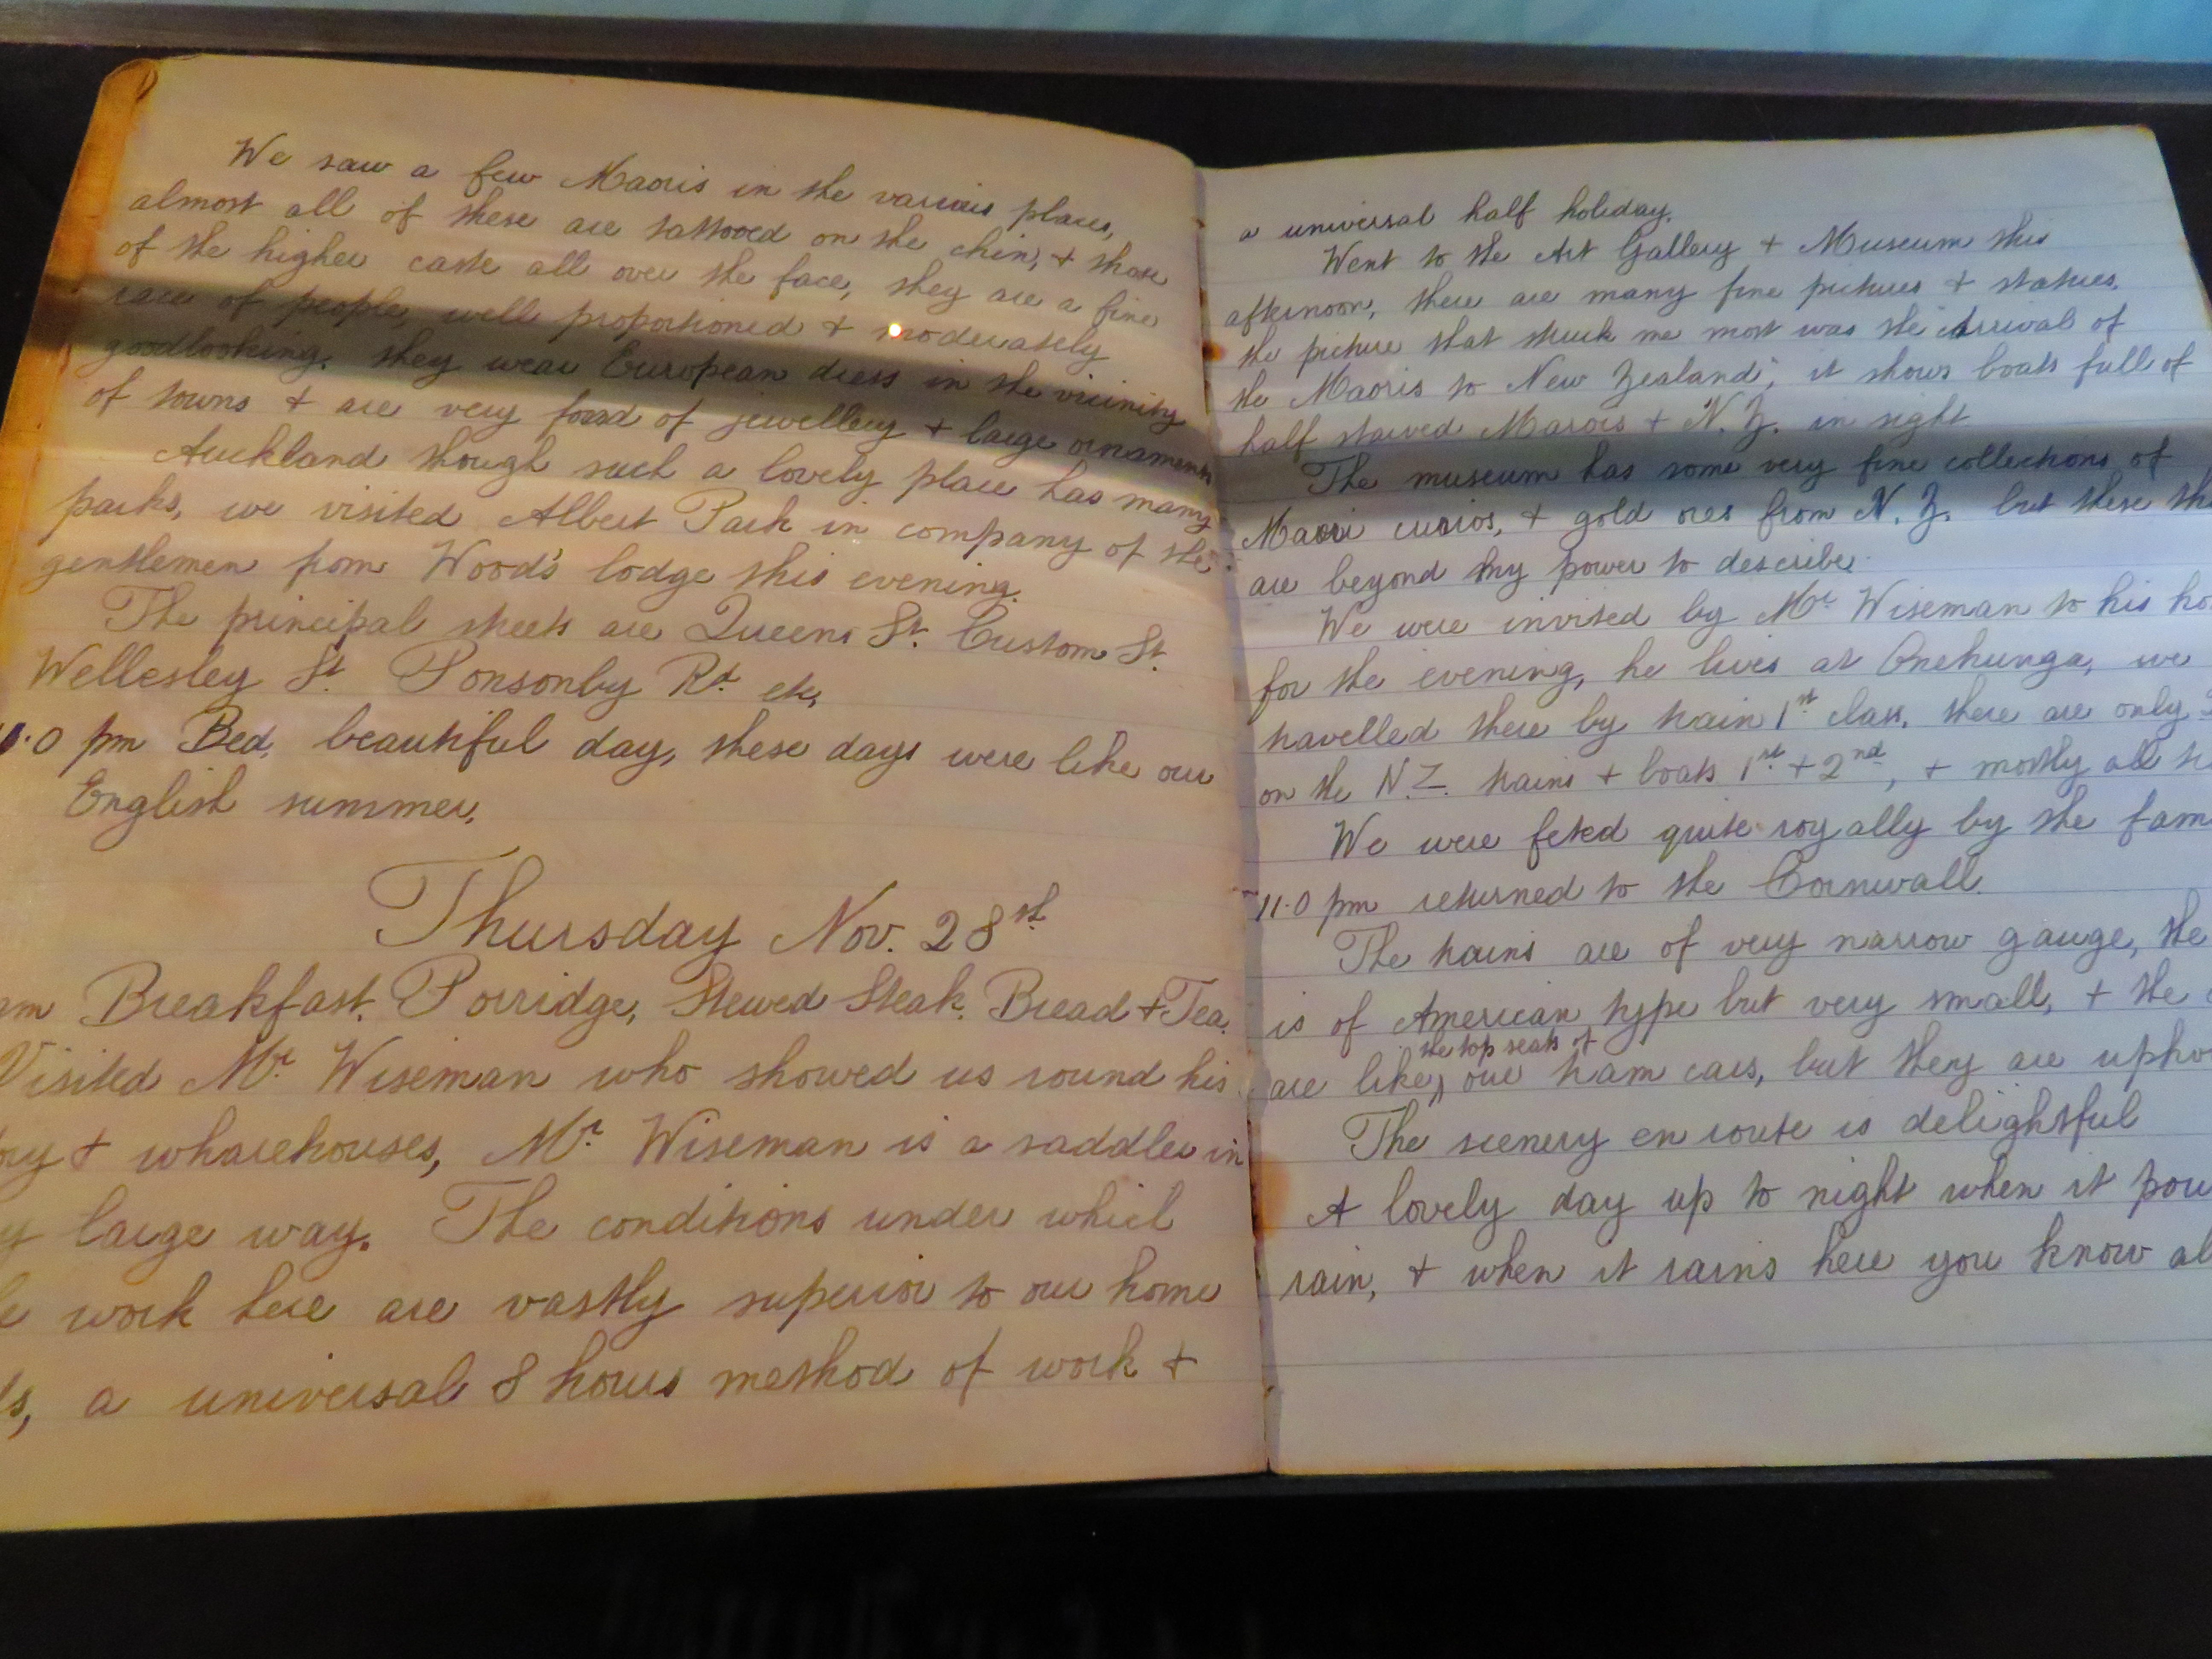 We saw a few Maoris in the various places,
almost all of these are tattooed on the chin, + those
of the higher caste all over the face, they are a fine
race of people, well proportioned + moderately
goodlooking. they wear European dress in the vicinity
of towns + are very fond of jewellery + large ornaments
Auckland though such a lovely place has many
parks, we visited Albert Park in company of the
gentlemen from Wood's lodge this evening.
The principal streets are Queens St. Custom St.
Wellesley St. Ponsonby Rd etc,
.0 pm Bed, beautiful day, these days were like our
English summer.
Thursday Nov. 28st
am Breakfast. Porridge, Stewed Steak. Bread + Tea.
Visited Mr Wiseman who showed us round his
ory + wharehouses, Mr Wiseman is a saddler in
y large way. The conditions under which
e work here are vastly superior to our home
ds, a universal 8 hours method of work +
a universal half holiday.
Went to the Art Gallery + Museum this
afternoon, there are many fine pictures + statues.
the picture that struck me most was the "Arrival of
the Maoris to New Zealand", it shows boats full of
half starved Marois + N.Z. in sight
The museum has some very fine collections of
Maori curios, + gold ores from N.Z. but these th
are beyond my power to describe.
We were invited by Mr Wiseman to his ho
for the evening, he lives at Onehunga, we
travelled there by train 1st class, there are only 2
on the N.Z. trains + boats 1st + 2nd, + mostly all
We were feted quite royally by the fam
11.0 pm returned to the Cornwall.
The trains are of very narrow gauge, the
is of American type but very small, + the
the top seats of
are like, our tram cars, but they are upho
The scenery en route is delightful
A lovely day up to night when it pou
rain, + when it rains here you know al